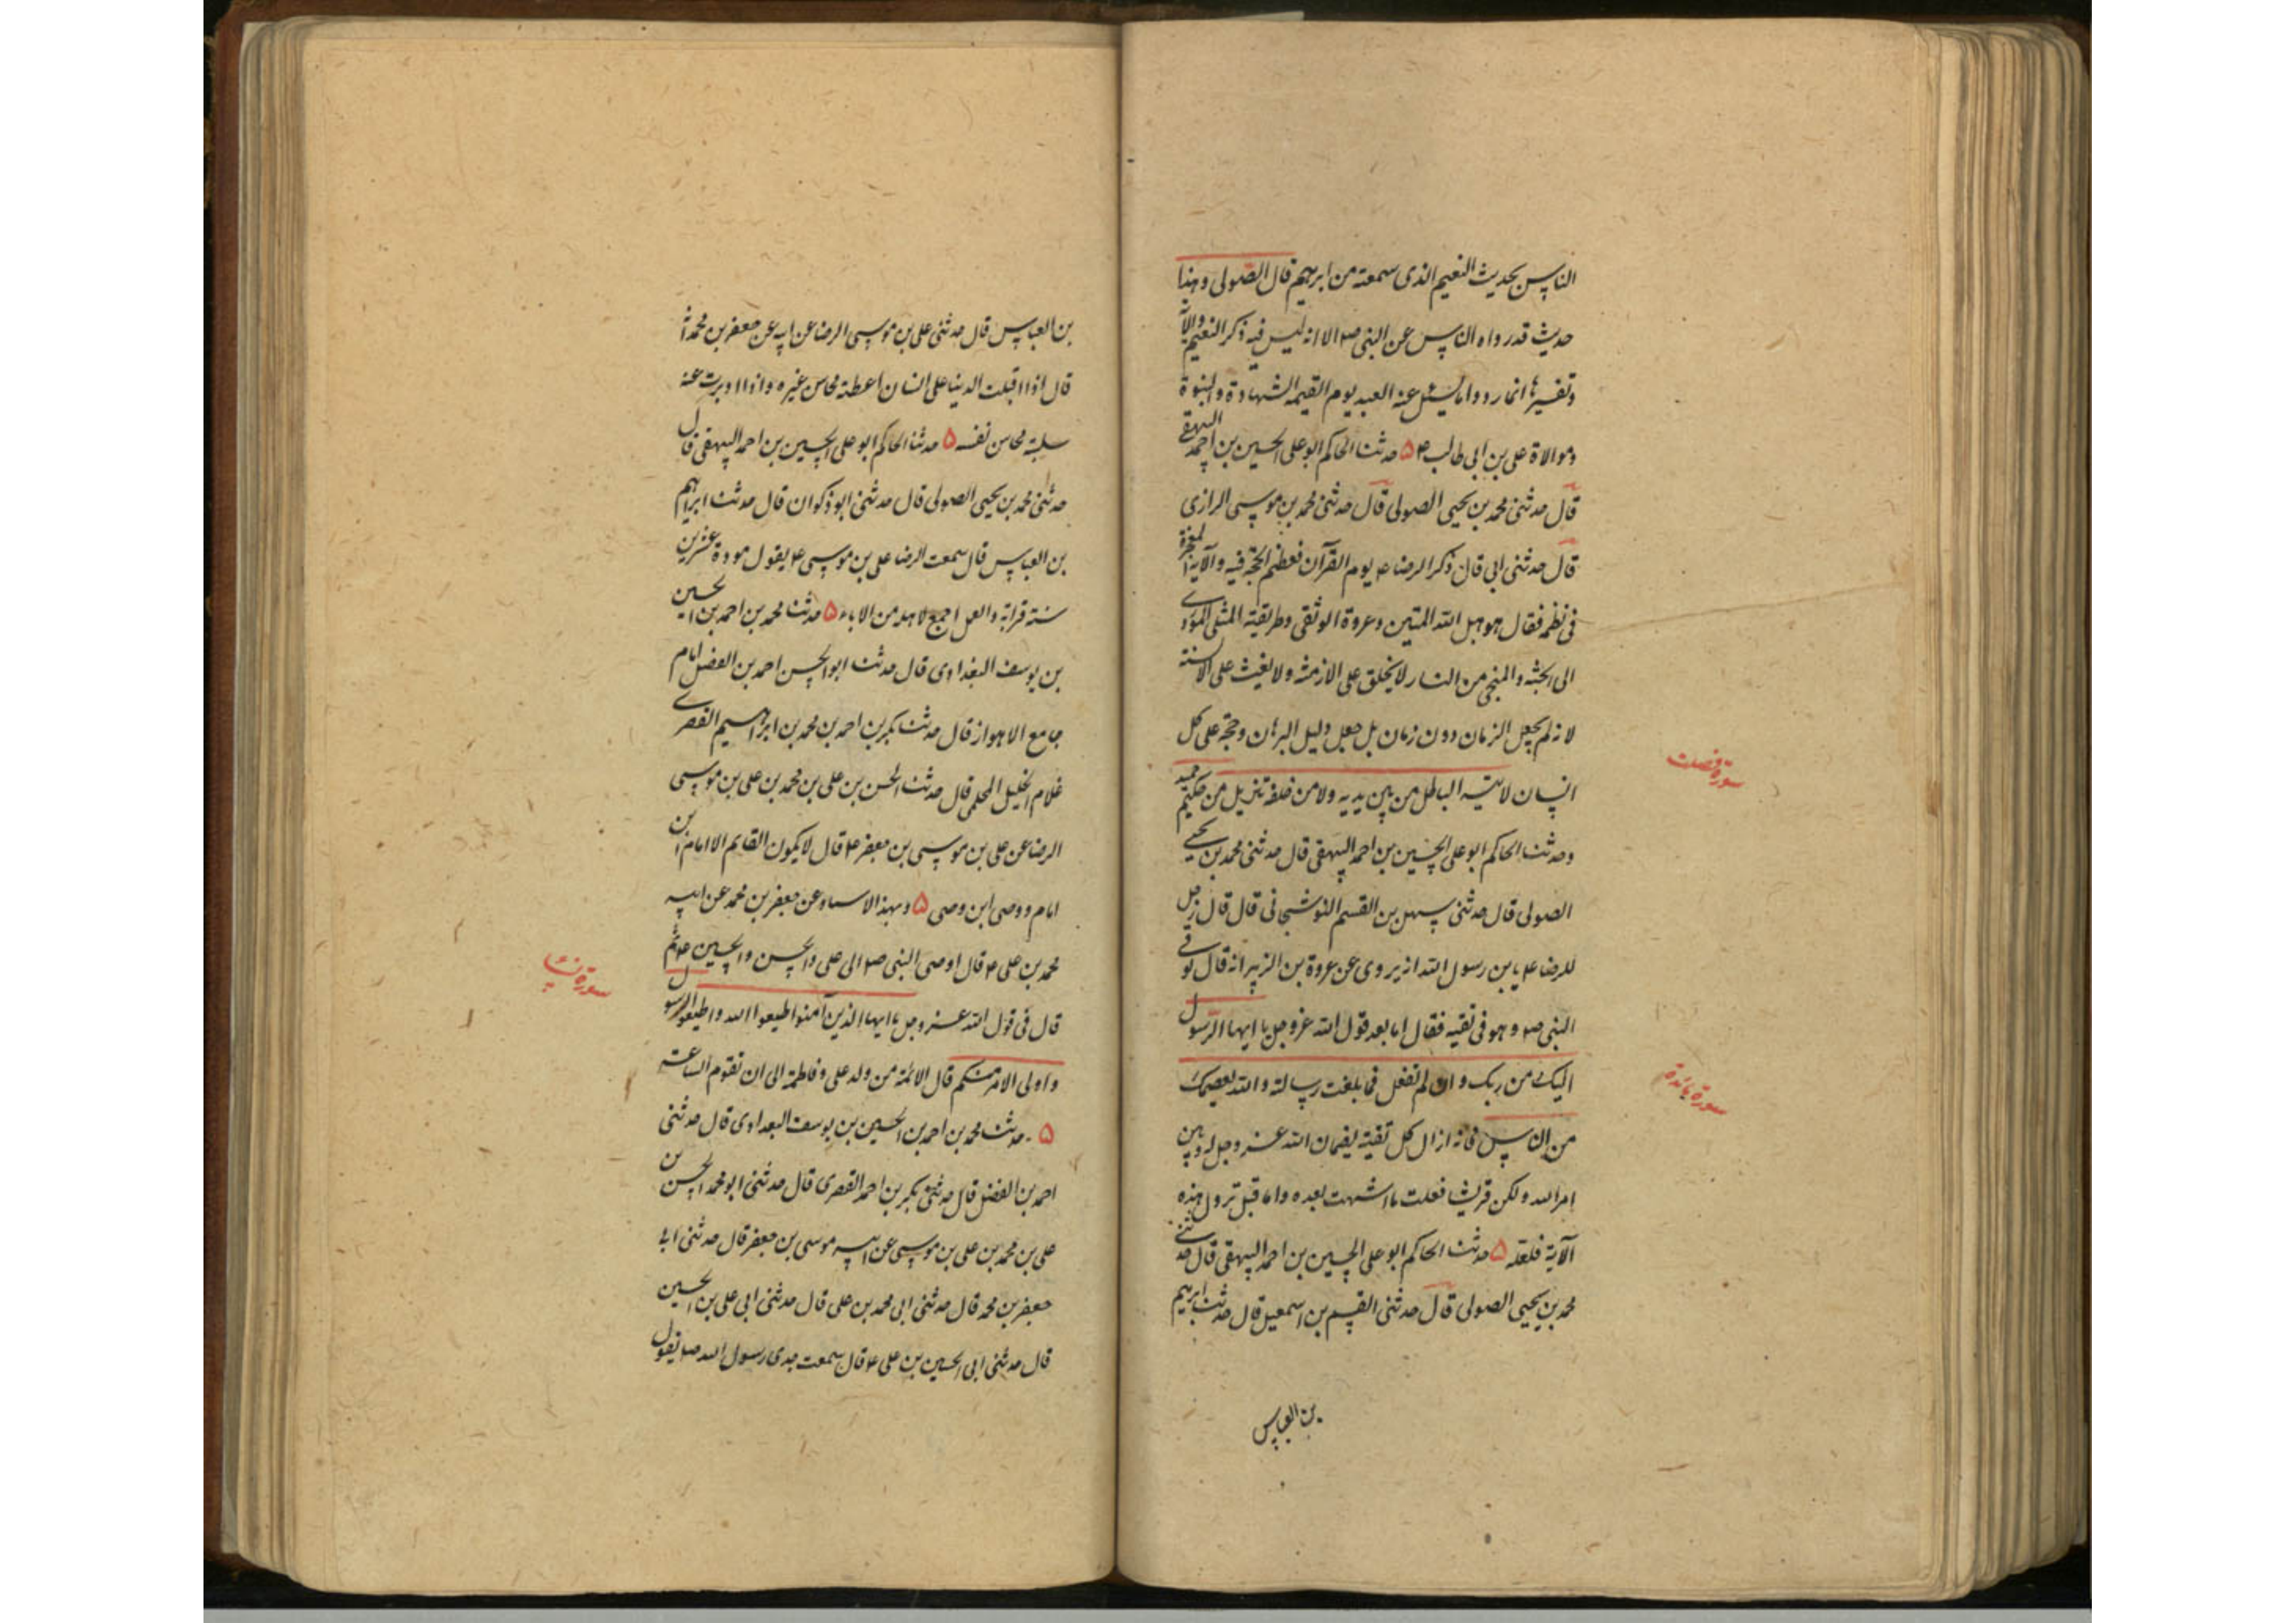 الناس بحديث النعيم الذى سمعته من ابرهيم قال الصولى وهذا
حديث قد رواه الناس عن النبى ص الا انه ليس فيه ذكر النعيم والآية
وتفسيرها انما رووا اما يسئل عنه العبد يوم القيمه الشهادة والنبوة
وموالاة على بن ابى طالب ع ۵ حدثنا الحاكم ابو على الحسين بن احمد البيهقى
قال حدثنى محمد بن يحيى الصولى قال حدثنى محمد بن موسى الرازى
قال حدثنى ابى قال ذكر الرضا ع يوم القرآن فعظم الحجة فيه والآية المعجزة
فى نظمه فقال هو حبل الله المتين وعروة الوثقى وطريقته المثلى المؤدى
الى الجنة والمنجى من النار لا يخلق على الازمنة ولا يغث على الالسنة
لانه لم يجعل لزمان دون زمان بل جعل دليل البرهان وحجة على كل
انسان لا يأتيه الباطل من بين يديه ولا من خلفه تنزيل من حكيم حميد
سورة فصلت
وحدثنا الحاكم ابو على الحسين بن احمد البيهقى قال حدثنى محمد بن يحيى
الصولى قال حدثنى سهل بن القسم النوشجانى قال قال رجل
للرضا ع يا بن رسول الله انه يروى عن عروة بن الزبير انه قال توفى
النبى ص وهو فى تقيه فقال اما بعد قول الله عز وجل يا ايها الرسول
اليك من ربك وان لم تفعل فما بلغت رسالته والله يعصمك
سورة مائدة
من الناس فانه ازال كل تقية بضمان الله عز وجل له وبين
امر الله ولكن قريشا فعلت ما اشتهت بعده واما قبل نزول هذه
الآية فلعله ۵ حدثنا الحاكم ابو على الحسين بن احمد البيهقى قال حدثنى
محمد بن يحيى الصولى قال حدثنى القسم بن اسمعيل قال حدثنا ابرهيم
بن العباس
بن العباس قال حدثنى على بن موسى الرضا عن ابيه عن جعفر بن محمد انه
قال اذا اقبلت الدنيا على انسان اعطته محاسن غيره واذا ادبرت عنه
سلبته محاسن نفسه ۵ حدثنا الحاكم ابو على الحسين بن احمد البيهقى قال
حدثنى محمد بن يحيى الصولى قال حدثنى ابو ذكوان قال حدثنا ابراهيم
بن العباس قال سمعت الرضا على بن موسى ع يقول مودة عشرين
سنة قرابة والعلم اجمع لاهله من الاباء ۵ حدثنا محمد بن احمد بن الحسين
بن يوسف البغدادى قال حدثنا ابو الحسن احمد بن الفضل امام
جامع الاهواز قال حدثنا بكر بن احمد بن محمد بن ابراهيم القصرى
غلام الخليل المحلمى قال حدثنا الحسن بن على بن محمد بن على بن موسى
الرضا عن على بن موسى بن جعفر ع قال لا يكون القايم الا امام بن
امام ووصى ابن وصى ۵ وبهذا الاسناد عن جعفر بن محمد عن ابيه
محمد بن على ع قال اوصى النبى ص الى على والحسن والحسين ع ثم
سورة نساء
قال فى قول الله عز وجل يا ايها الذين آمنوا اطيعوا الله واطيعوا الرسول
واولى الامر منكم قال الائمة من ولد على وفاطمة الى ان تقوم الساعة
۵ حدثنا محمد بن احمد بن الحسين بن يوسف البغدادى قال حدثنى
احمد بن الفضل قال حدثنى بكر بن احمد القصرى قال حدثنى ابو محمد الحسن بن
على بن محمد بن على بن موسى عن ابيه موسى بن جعفر قال حدثنى ابى
جعفر بن محمد قال حدثنى ابى محمد بن على قال حدثنى ابى على بن الحسين
قال حدثنى ابى الحسين بن على ع قال سمعت جدى رسول الله ص يقول